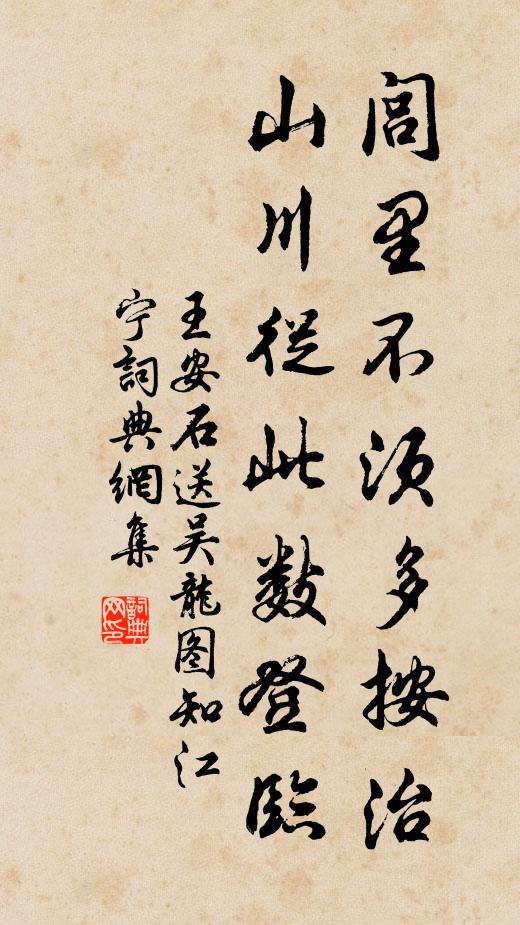 閭里不須多按治
山川從此數登臨
王安石送吴龍图知江
宁詞典網集
詞典网印